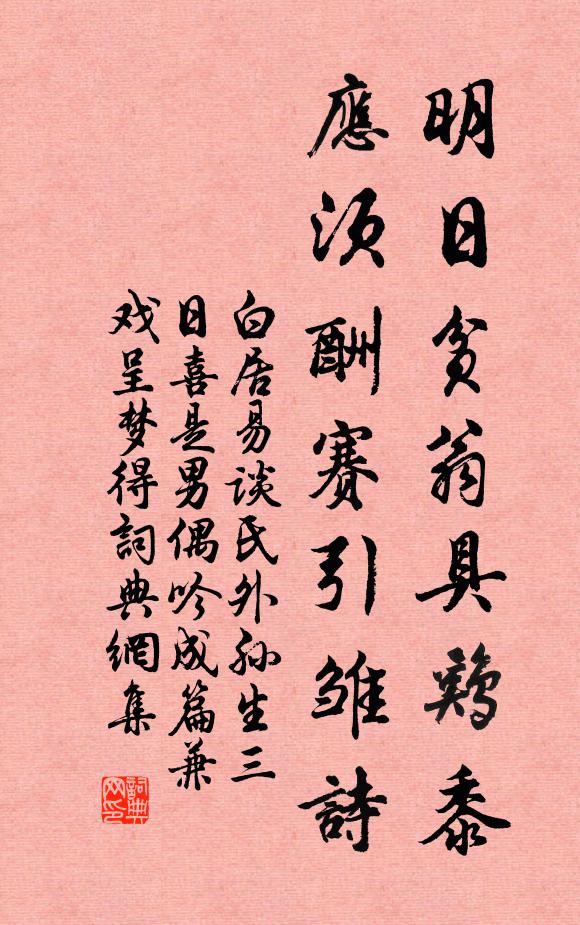 明日貧翁具鷄黍
應須酬賽引雛詩
白居易谈氏外孙生三
日喜是男偶吟成篇兼
戏呈梦得詞典網集
詞典网印